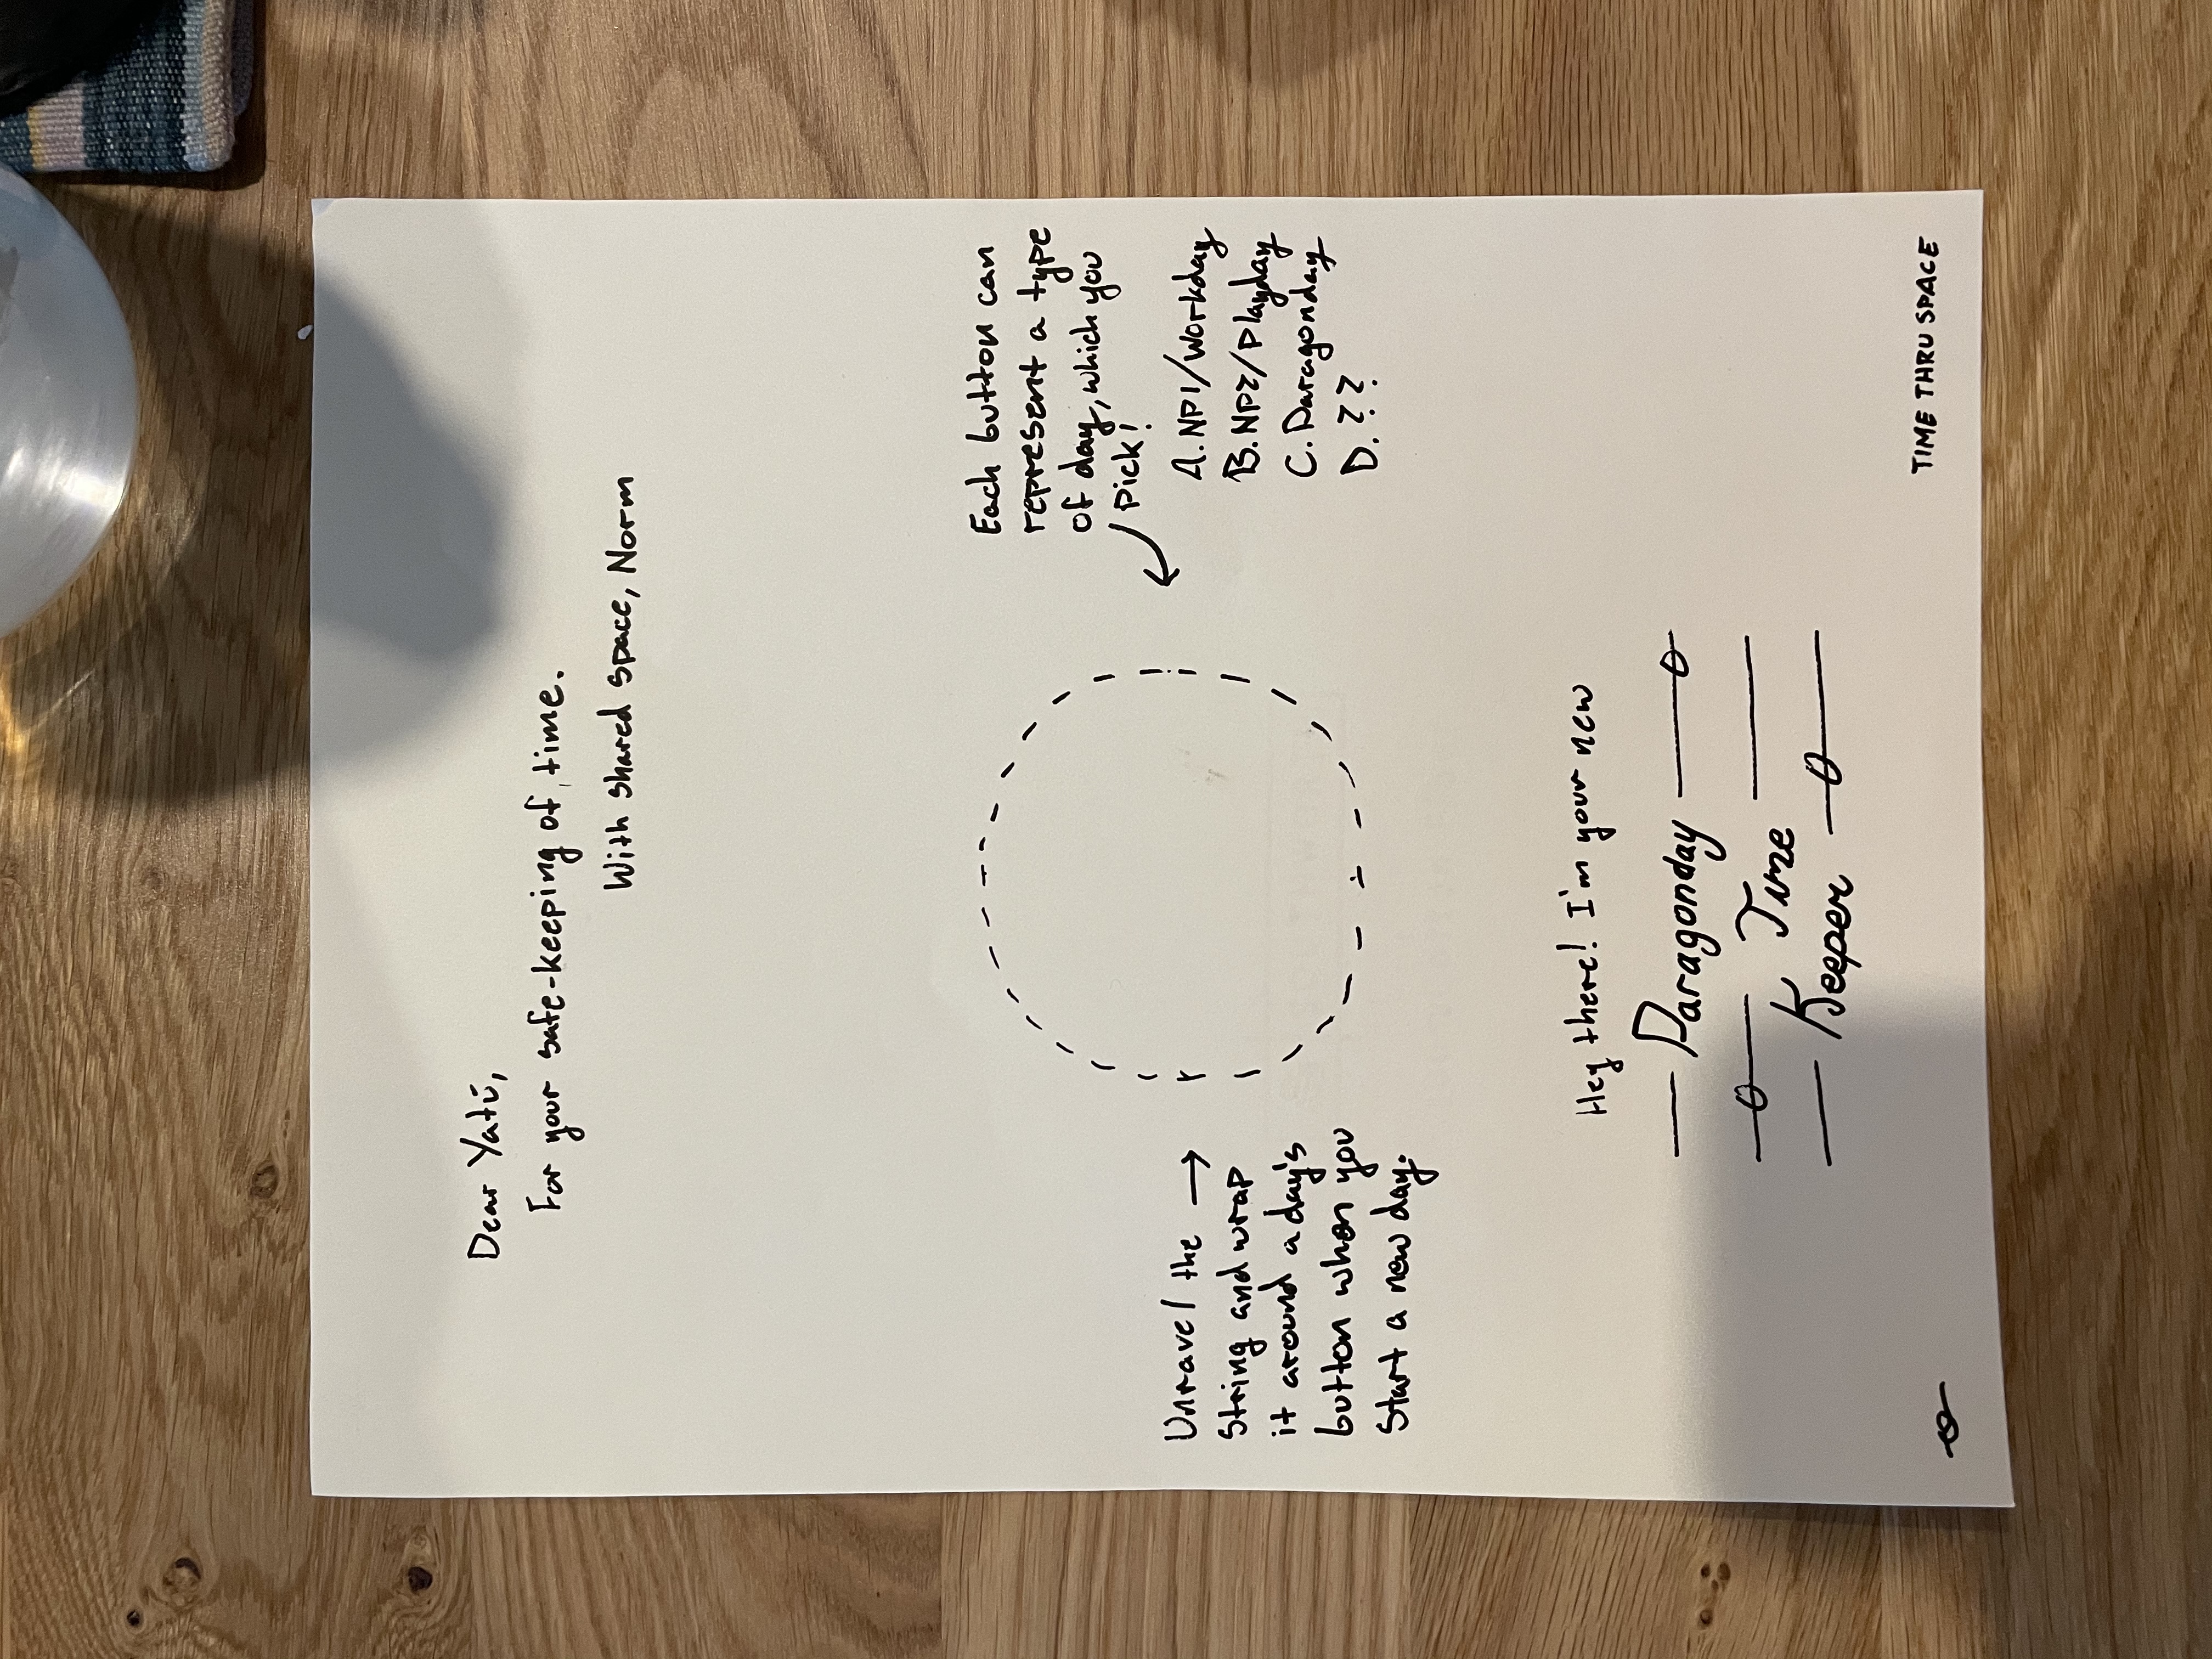 Dear Yatú,
For your safe-keeping of, time.
With shared space, Norm
Each button can
represent a type
of day, which you
pick!
A. NP1/Workday
B. NP2/Playday
C. Paragonday
D. ???
Unravel the →
string and wrap
it around a day's
button when you
start a new day.
Hey there! I'm your new
Paragonday
Time
Keeper
TIME THRU SPACE